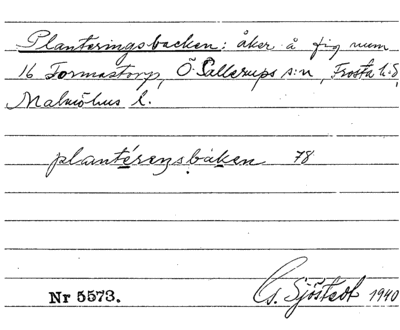 Planteringsbacken: åker å fig num
16 Tormastorp, Ö. Sallerups s:n, Frosta h.d,
Malmöhus l.
plantéreṇsbàken 78
Nr 5573.
G. Sjöstedt 1940